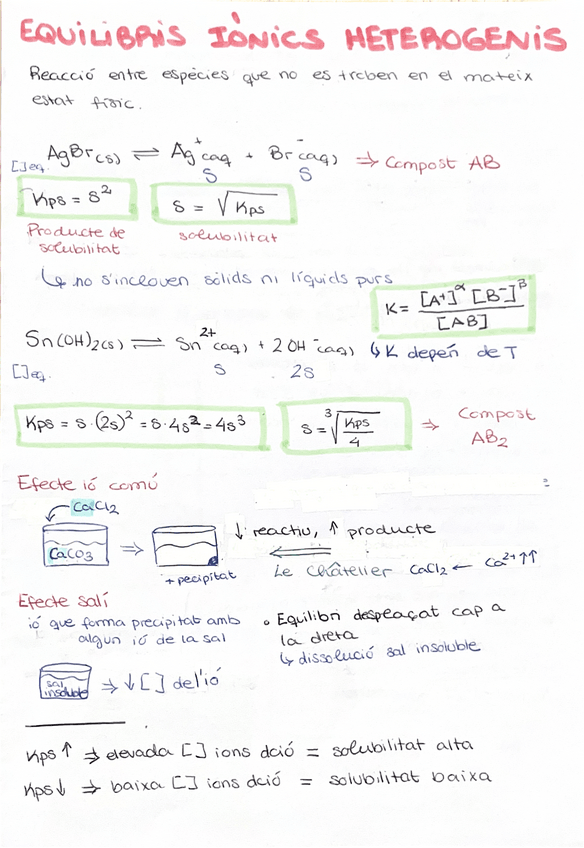 EQUILIBRIS IÒNICS HETEROGENIS
Reacció entre espècies que no es troben en el mateix
estat físic.
AgBr(s) ⇌ Ag⁺(aq) + Br⁻(aq) ⇒ Compost AB
[]eq. S S
Kps = s² s = √Kps
Producte de solubilitat
solubilitat
↳ no s'inclouen sòlids ni líquids purs
K = [A⁺]^α [B⁻]^β / [AB]
Sn(OH)2(s) ⇌ Sn²⁺(aq) + 2OH⁻(aq) ↳ K depèn de T
[]eq. S 2S
Kps = s·(2s)² = s·4s² = 4s³ s = ³√(Kps/4) ⇒ Compost AB₂
Efecte ió comú
CaCl2
CaCO3 ⇒ ↓ reactiu, ↑ producte
+ pecipitat Le Châtelier CaCl2 ← Ca²⁺↑↑
Efecte salí
ió que forma precipitat amb
algun ió de la sal
• Equilibri despeaçat cap a
la dreta
↳ dissolució sal insoluble
sal insoluble ⇒ ↓ [] de l'ió
Kps ↑ ⇒ elevada [] ions dció = solubilitat alta
Kps ↓ ⇒ baixa [] ions dció = solubilitat baixa